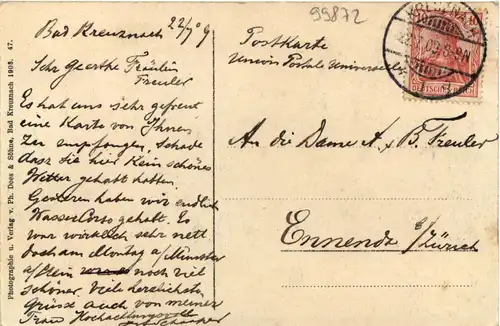 99872
Bad Kreuznach 22/7 09
Postkarte
Union Postale Universelle
DEUTSCHES REICH
Sehr geerthe Fräulein
Freuler
Es hat uns sehr gefreut
eine Karte von Ihnen
zu empfangen, schade
dass sie hier kein schönes
Wetter gehabt hatten.
Gestern haben wir endlich
Wasser Corso gehabt. Es
war wirklich sehr nett
doch am Montag a/Münster
a/Stein noch viel
schöner. Viele herzlichste
Grüsse auch von meiner
Frau Hochachtungsvoll
An die Dame A. & B. Freuler
Ennenda
b/Zürich
Photographie u. Verlag v. Ph. Dees & Söhne, Bad Kreuznach 1908. 47.